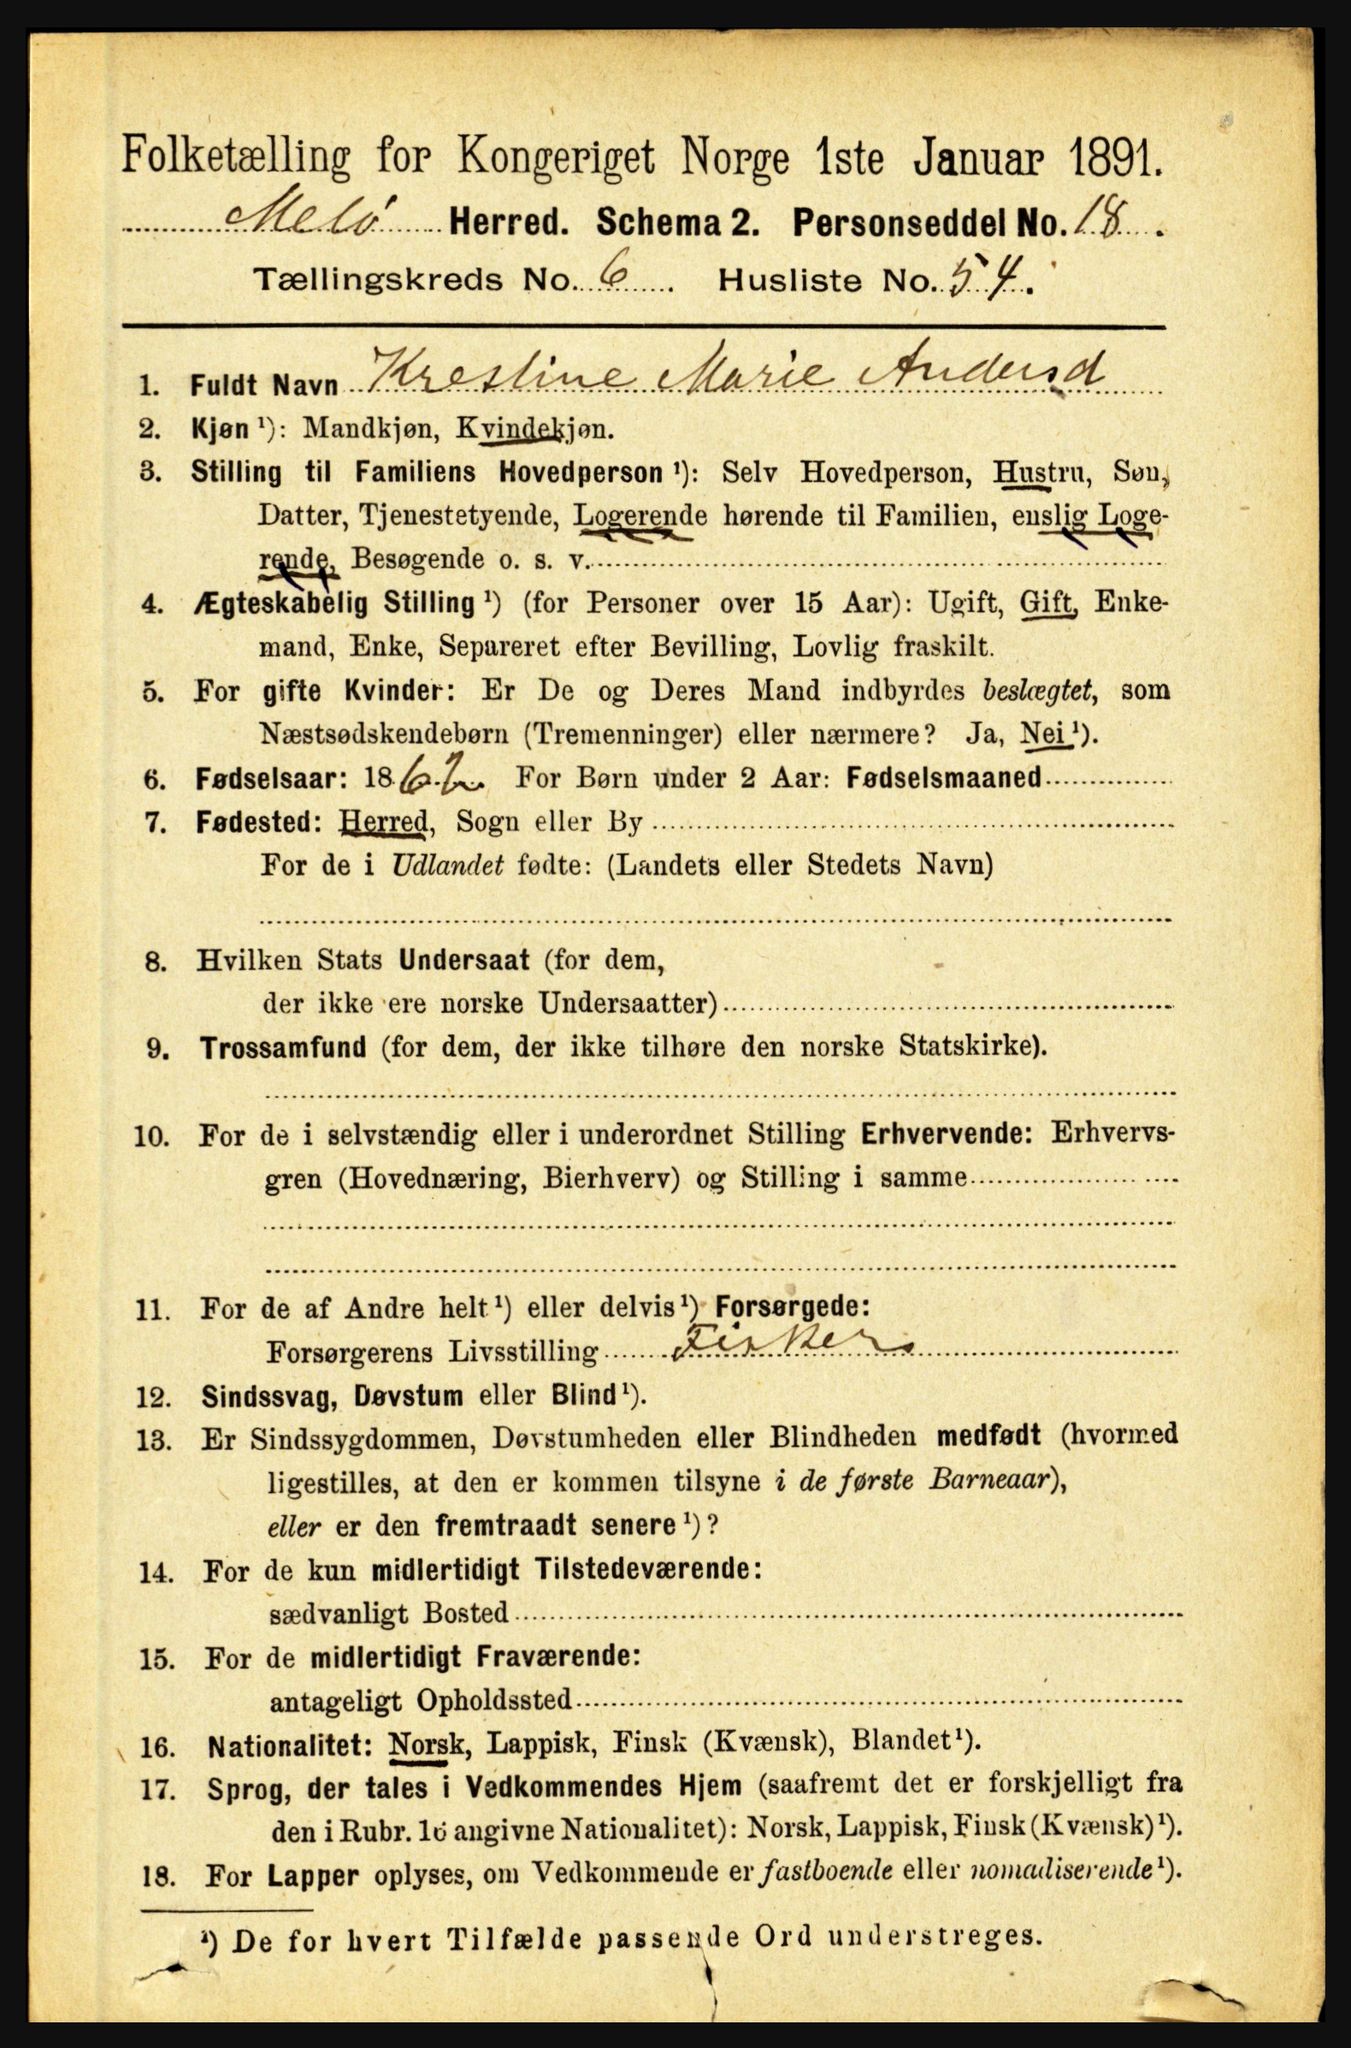 Folketælling for Kongeriget Norge 1ste Januar 1891.
Melø Herred. Schema 2. Personseddel No. 18.
Tællingskreds No. 6. Husliste No. 54.
1. Fuldt Navn Krestine Marie Andersd
2. Kjøn ¹): Mandkjøn, Kvindekjøn.
3. Stilling til Familiens Hovedperson ¹): Selv Hovedperson, Hustru, Søn,
Datter, Tjenestetyende, Logerende hørende til Familien, enslig Loge-
rende, Besøgende o. s. v.
4. Ægteskabelig Stilling ¹) (for Personer over 15 Aar): Ugift, Gift, Enke-
mand, Enke, Separeret efter Bevilling, Lovlig fraskilt.
5. For gifte Kvinder: Er De og Deres Mand indbyrdes beslægtet, som
Næstsødskendebørn (Tremenninger) eller nærmere? Ja, Nei ¹).
6. Fødselsaar: 1862. For Børn under 2 Aar: Fødselsmaaned
7. Fødested: Herred, Sogn eller By
For de i Udlandet fødte: (Landets eller Stedets Navn)
8. Hvilken Stats Undersaat (for dem,
der ikke ere norske Undersaatter)
9. Trossamfund (for dem, der ikke tilhøre den norske Statskirke).
10. For de i selvstændig eller i underordnet Stilling Erhvervende: Erhvervs-
gren (Hovednæring, Bierhverv) og Stilling i samme
11. For de af Andre helt ¹) eller delvis ¹) Forsørgede:
Forsørgerens Livsstilling Fisker
12. Sindssvag, Døvstum eller Blind ¹).
13. Er Sindssygdommen, Døvstumheden eller Blindheden medfødt (hvormed
ligestilles, at den er kommen tilsyne i de første Barneaar),
eller er den fremtraadt senere ¹)?
14. For de kun midlertidigt Tilstedeværende:
sædvanligt Bosted
15. For de midlertidigt Fraværende:
antageligt Opholdssted
16. Nationalitet: Norsk, Lappisk, Finsk (Kvænsk), Blandet ¹).
17. Sprog, der tales i Vedkommendes Hjem (saafremt det er forskjelligt fra
den i Rubr. 16 angivne Nationalitet): Norsk, Lappisk, Finsk (Kvænsk) ¹).
18. For Lapper oplyses, om Vedkommende er fastboende eller nomadiserende ¹).
¹) De for hvert Tilfælde passende Ord understreges.